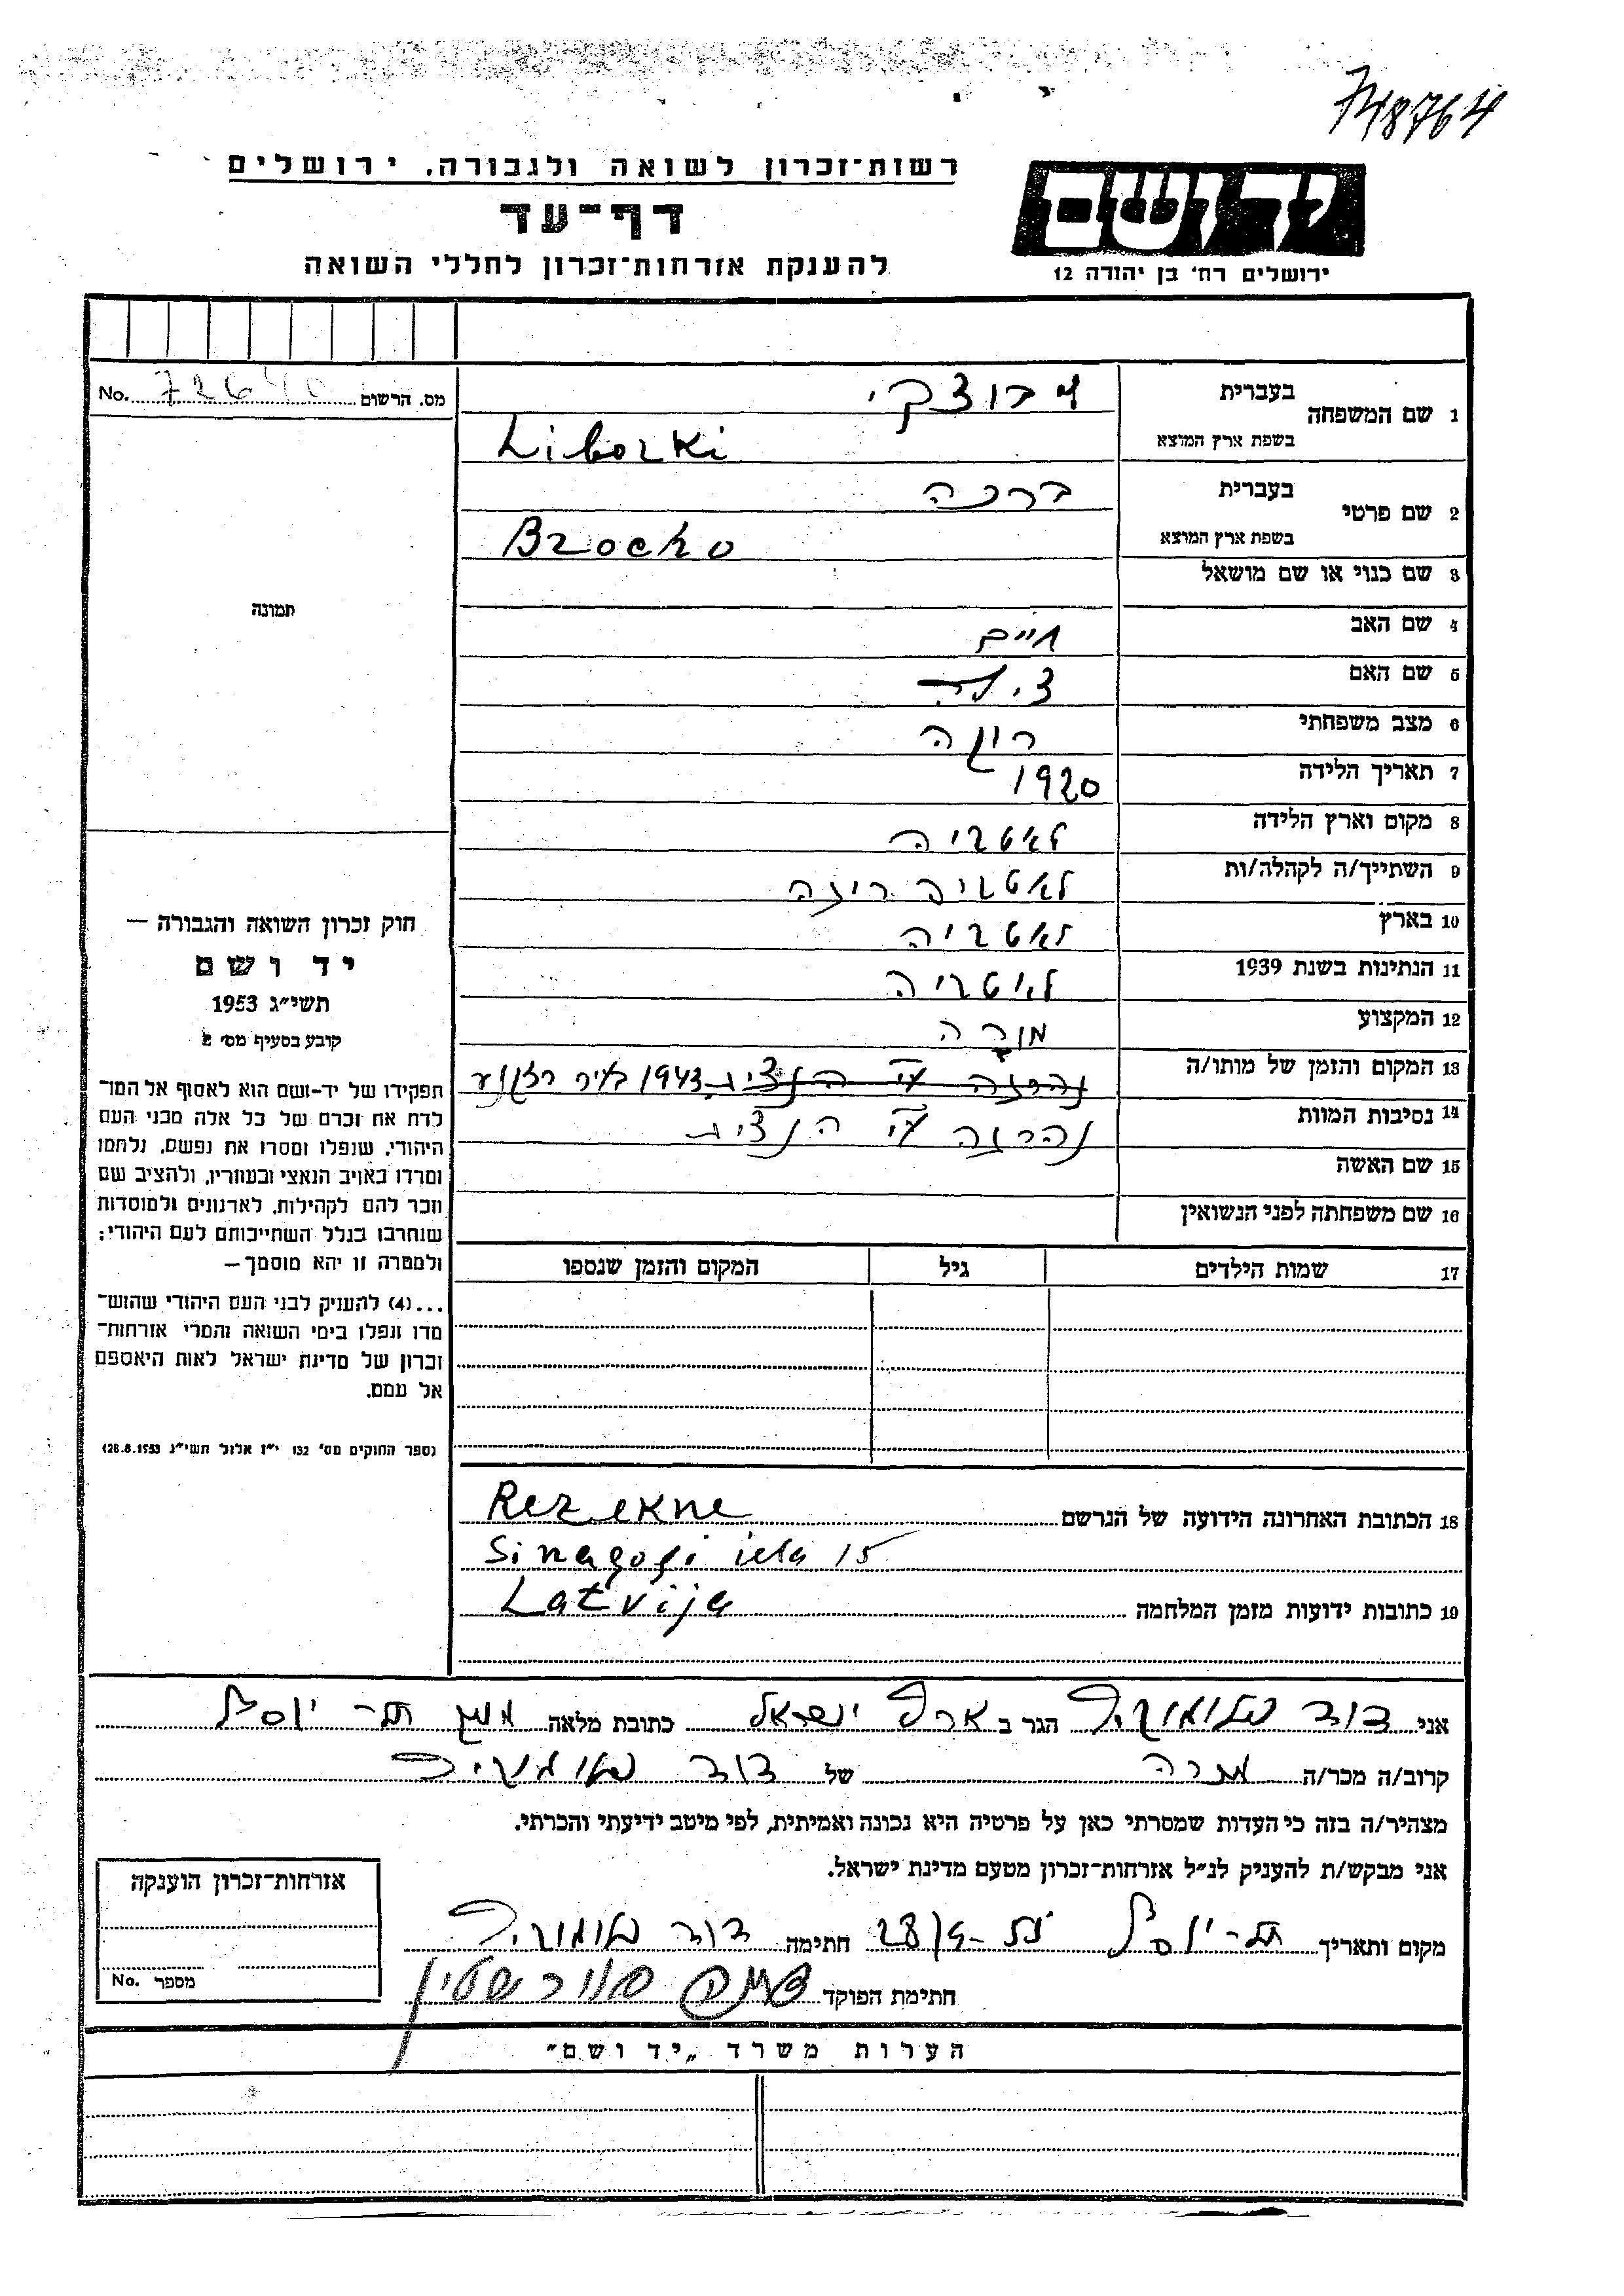 רשות־זכרון לשואה ולגבורה, ירושלים
דף־עד
להענקת אזרחות־זכרון לחללי השואה
יד ושם
ירושלים רח' בן יהודה 12
מס. הרשום No.
1 שם המשפחה
בעברית
בשפת ארץ המוצא Liborki
2 שם פרטי
בעברית ברכה
בשפת ארץ המוצא Brocho
3 שם כנוי או שם מושאל
4 שם האב חיים
5 שם האם צילה
6 מצב משפחתי רווקה
7 תאריך הלידה 1920
8 מקום וארץ הלידה לאטביה
9 השתייך/ה לקהלה/ות
10 בארץ לאטביה
11 הנתינות בשנת 1939 לאטביה
12 המקצוע מורה
13 המקום והזמן של מותו/ה נהרגה ע"י הנאצים 1943
14 נסיבות המוות נהרגה ע"י הנאצים
15 שם האשה
16 שם משפחתה לפני הנשואין
17 שמות הילדים גיל המקום והזמן שנספו
18 הכתובת האחרונה הידועה של הנרשם Rezekne
Sinagogi iela 15
19 כתובות ידועות מזמן המלחמה Latvija
תמונה
חוק זכרון השואה והגבורה –
יד ושם
תשי"ג 1953
קובע בסעיף מס' 2
תפקידו של יד-ושם הוא לאסוף אל המו־
לדת את זכרם של כל אלה מבני העם
היהודי, שנפלו ומסרו את נפשם, נלחמו
ומרדו באויב הנאצי ובעוזריו, ולהציב שם
וזכר להם לקהילות, לארגונים ולמוסדות
שנחרבו בגלל השתייכותם לעם היהודי;
ולמטרה זו יהא מוסמך –
...(4) להעניק לבני העם היהודי שהוש־
מדו ונפלו בימי השואה והמרי אזרחות־
זכרון של מדינת ישראל לאות היאספם
אל עמם.
(ספר החוקים מס' 132 י"ז אלול תשי"ג 28.8.1953)
אני דוד הגר ב ארץ ישראל כתובת מלאה
קרוב/ה מכר/ה מכרה של דוד
מצהיר/ה בזה כי העדות שמסרתי כאן על פרטיה היא נכונה ואמיתית, לפי מיטב ידיעתי והכרתי.
אני מבקש/ת להעניק לנ"ל אזרחות־זכרון מטעם מדינת ישראל.
מקום ותאריך חתימה דוד
חתימת הפוקד
אזרחות־זכרון הוענקה
מספר No.
הערות משרד „יד ושם"